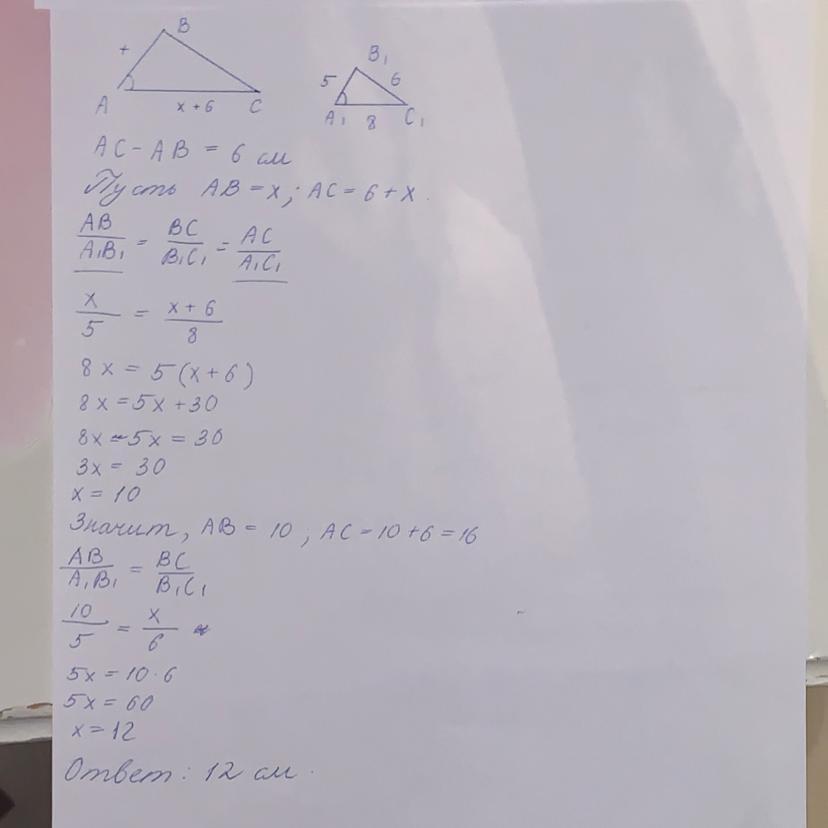 B
B₁
x
5
6
A
x + 6
C
A₁
8
C₁
AC - AB = 6 см
Пусть AB = x; AC = 6 + x.
AB/A₁B₁ = BC/B₁C₁ = AC/A₁C₁
x/5 = x + 6/8
8x = 5(x + 6)
8x = 5x + 30
8x - 5x = 30
3x = 30
x = 10
Значит, AB = 10; AC = 10 + 6 = 16
AB/A₁B₁ = BC/B₁C₁
10/5 = x/6
5x = 10 · 6
5x = 60
x = 12
Ответ: 12 см.